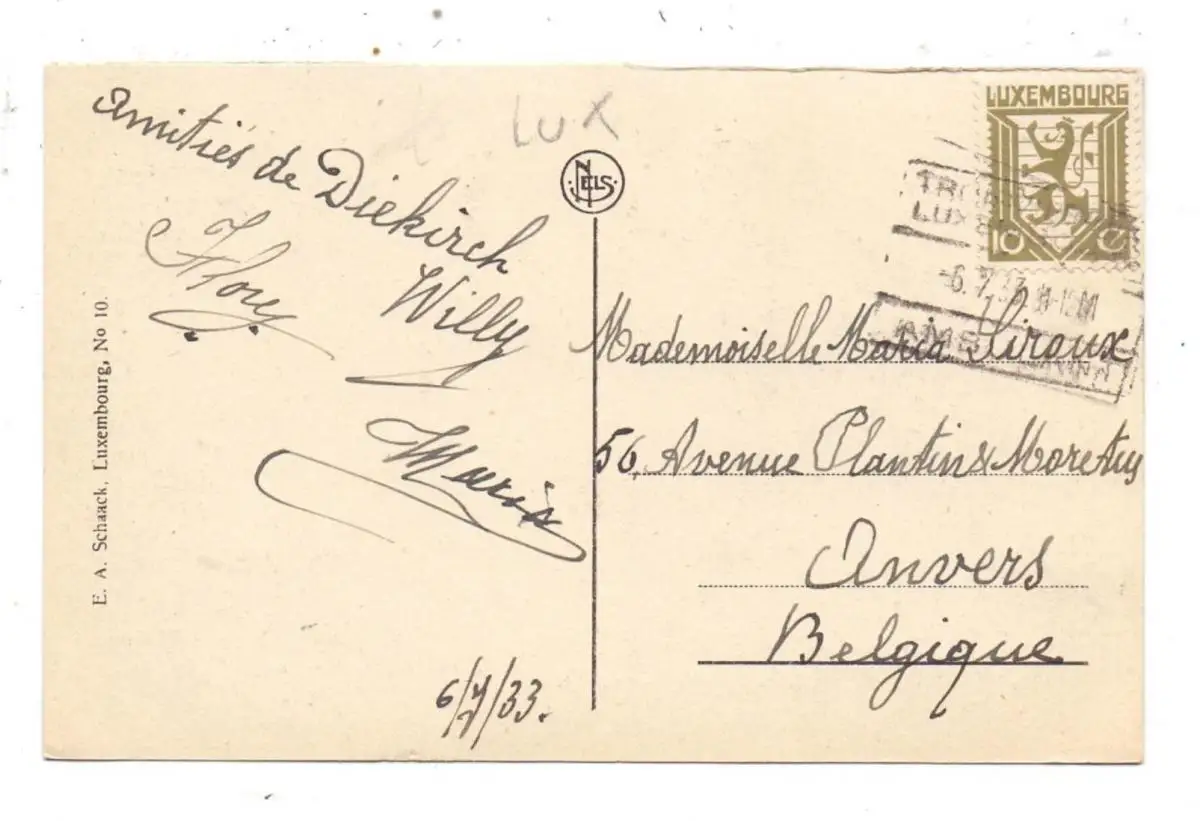 Amitiés de Diekirch
Willy
Flory
Maria
6/7/33.
E. A. Schaack, Luxembourg, No 10.
LUX
NELS
LUXEMBOURG
10 C
-6.7.33
Mademoiselle Maria Siroux
56, Avenue Plantin & Moretus
Anvers
Belgique